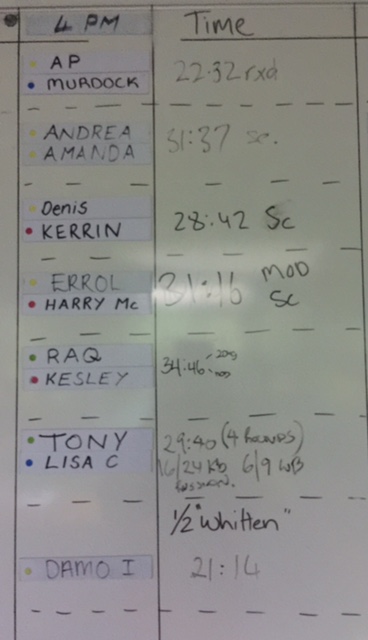 4 PM Time
AP
MURDOCK
22:32 rxd
ANDREA
AMANDA
31:37 sc.
Denis
KERRIN
28:42 Sc
ERROL
HARRY Mc
31:16 MOD
SC
RAQ
KESLEY
34:46
TONY
LISA C
29:40 (4 Rounds)
16/24 kb 6/9 WB
1/2 "Whitten"
DAMO I
21:14